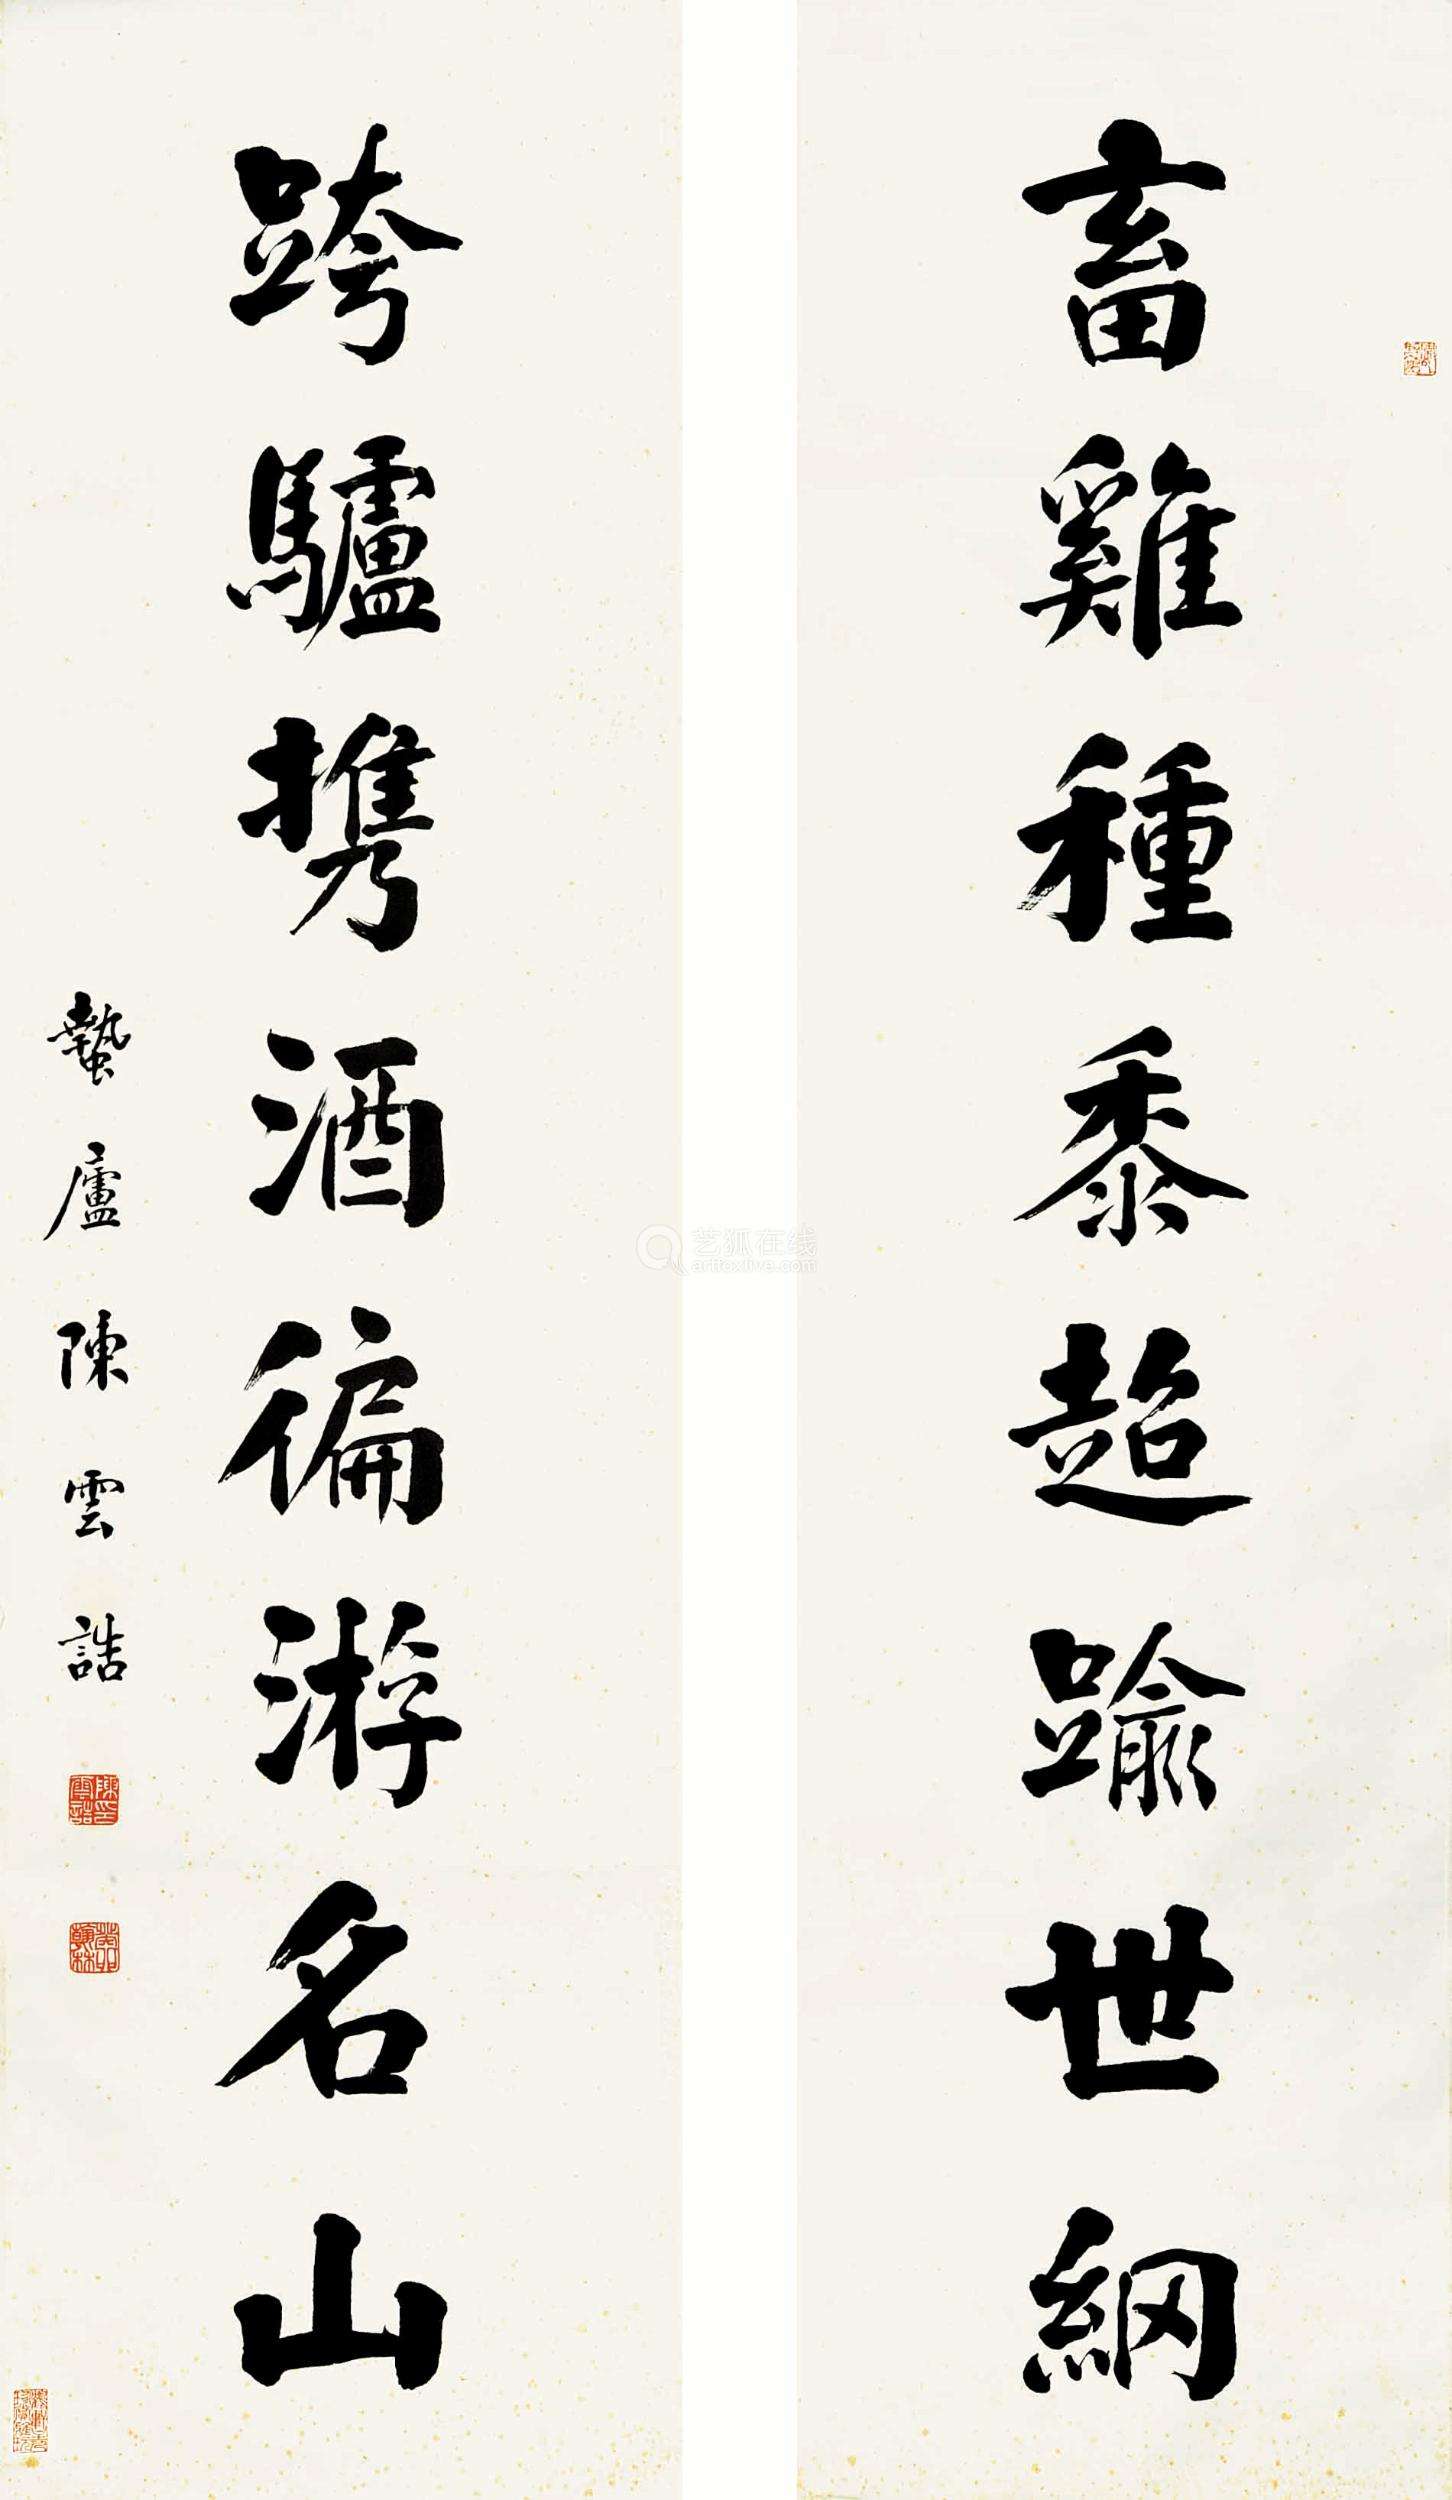 畜雞種黍超踰世網
跨驢携酒徧游名山
蟄廬陳雲誥
艺狐在线
artfoxlive.com